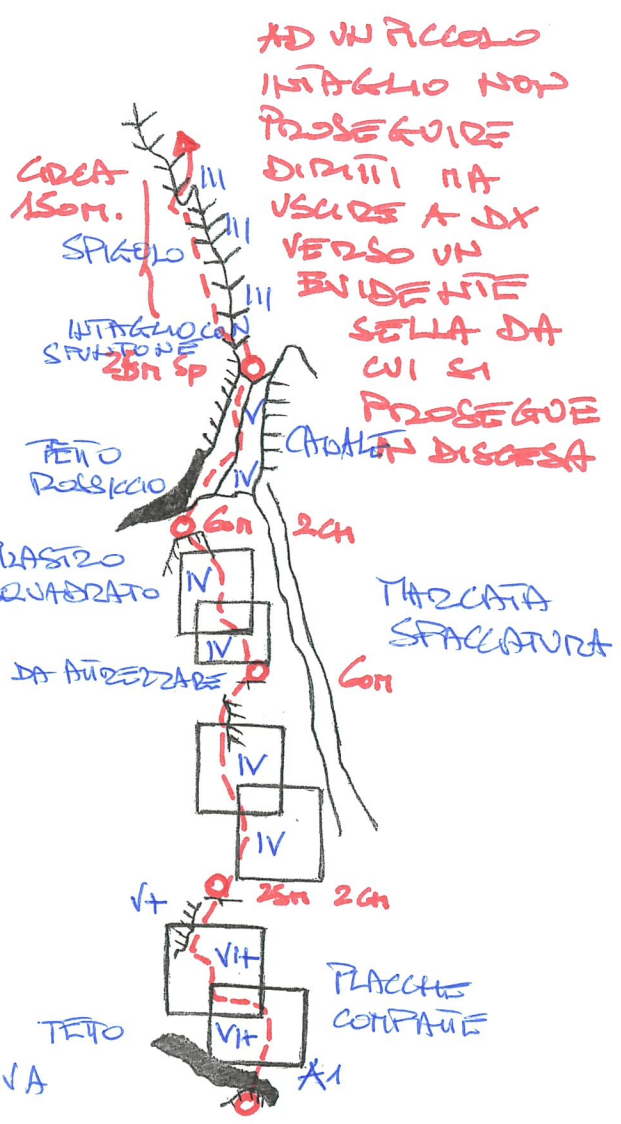 AD UN PICCOLO
INTAGLIO NON
PROSEGUIRE
DIRITTI MA
USCIRE A DX
VERSO UN
EVIDENTE
SELLA DA
CUI SI
PROSEGUE
IN DISCESA
CIRCA
150M.
III
III
SPIGOLO
III
INTAGLIO CON
SPUNTONE
25m Sp
V
CANALE
TETTO
ROSSICCIO
IV
60m 2CH
PILASTRO
SQUADRATO
IV
MARCATA
SPACCATURA
IV
DA ATTREZZARE
60m
IV
IV
V+
25m 2CH
VI+
PLACCHE
COMPATTE
TETTO
VI+
A1